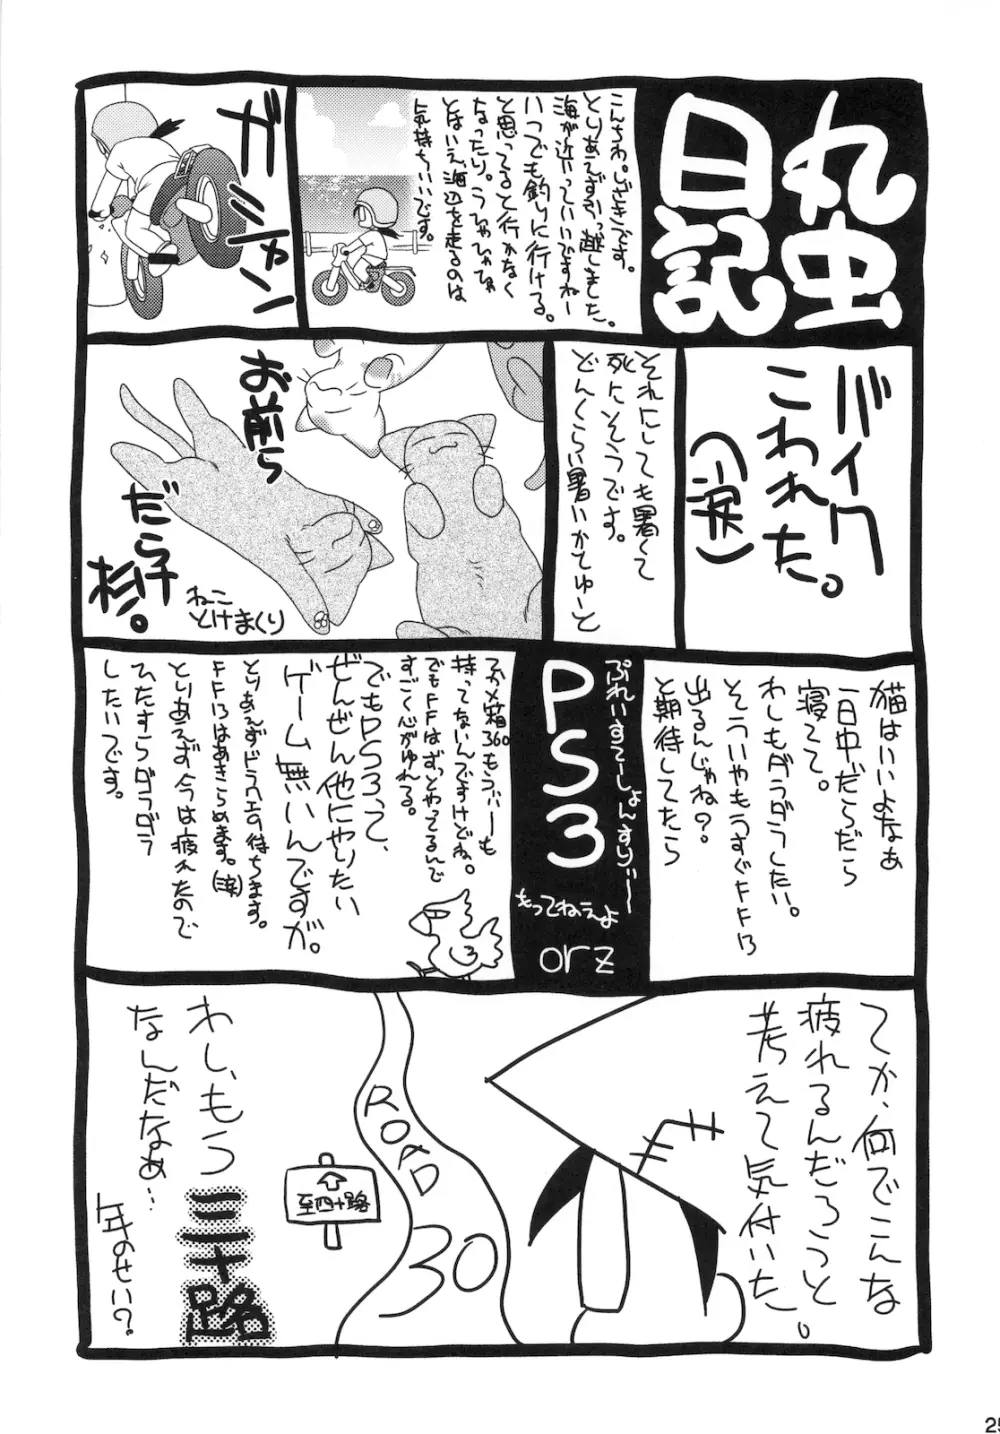 丸虫
日記
こんちわ。じざきです。
とりあえず引っ越しました。
海が近っていいですねー
いつでも釣りに行ける。
と思ってると行かなく
なったり。うひゃひゃひゃ
とはいえ海辺を走るのは
気持ちいいです。
ガシャン
バイク
こわれた。
(涙)
それにしても暑くて
死にそうです。
どんくらい暑いかてゆーと
お前ら
だらけ
杉。
ねこ
とけまくり
猫はいいよなぁ
一日中だらだら
寝てて。
わしもダラダラしたい。
そういやもうすぐFF13
出るんじゃね?
と期待してたら
ぷれいすてーしょんすりぃー
PS3
もってねぇよ
orz
でかメ箱360もうぃーも
持ってないんですけどね。
でもFFはずっとやってるんで
すごく心がゆれる。
でもPS3って、
ぜんぜん他にやりたい
ゲーム無いんですが。
とりあえずドラクエ9待ちます。
FF13はあきらめます。(涙)
とりあえず今は疲れたので
ひたすらダラダラ
したいです。
3
てか、何でこんな
疲れるんだろうっと
考えて気付いた。
ROAD
30
至四十路
わし、もう
三十路
なんだなぁ…
年のせい?
25